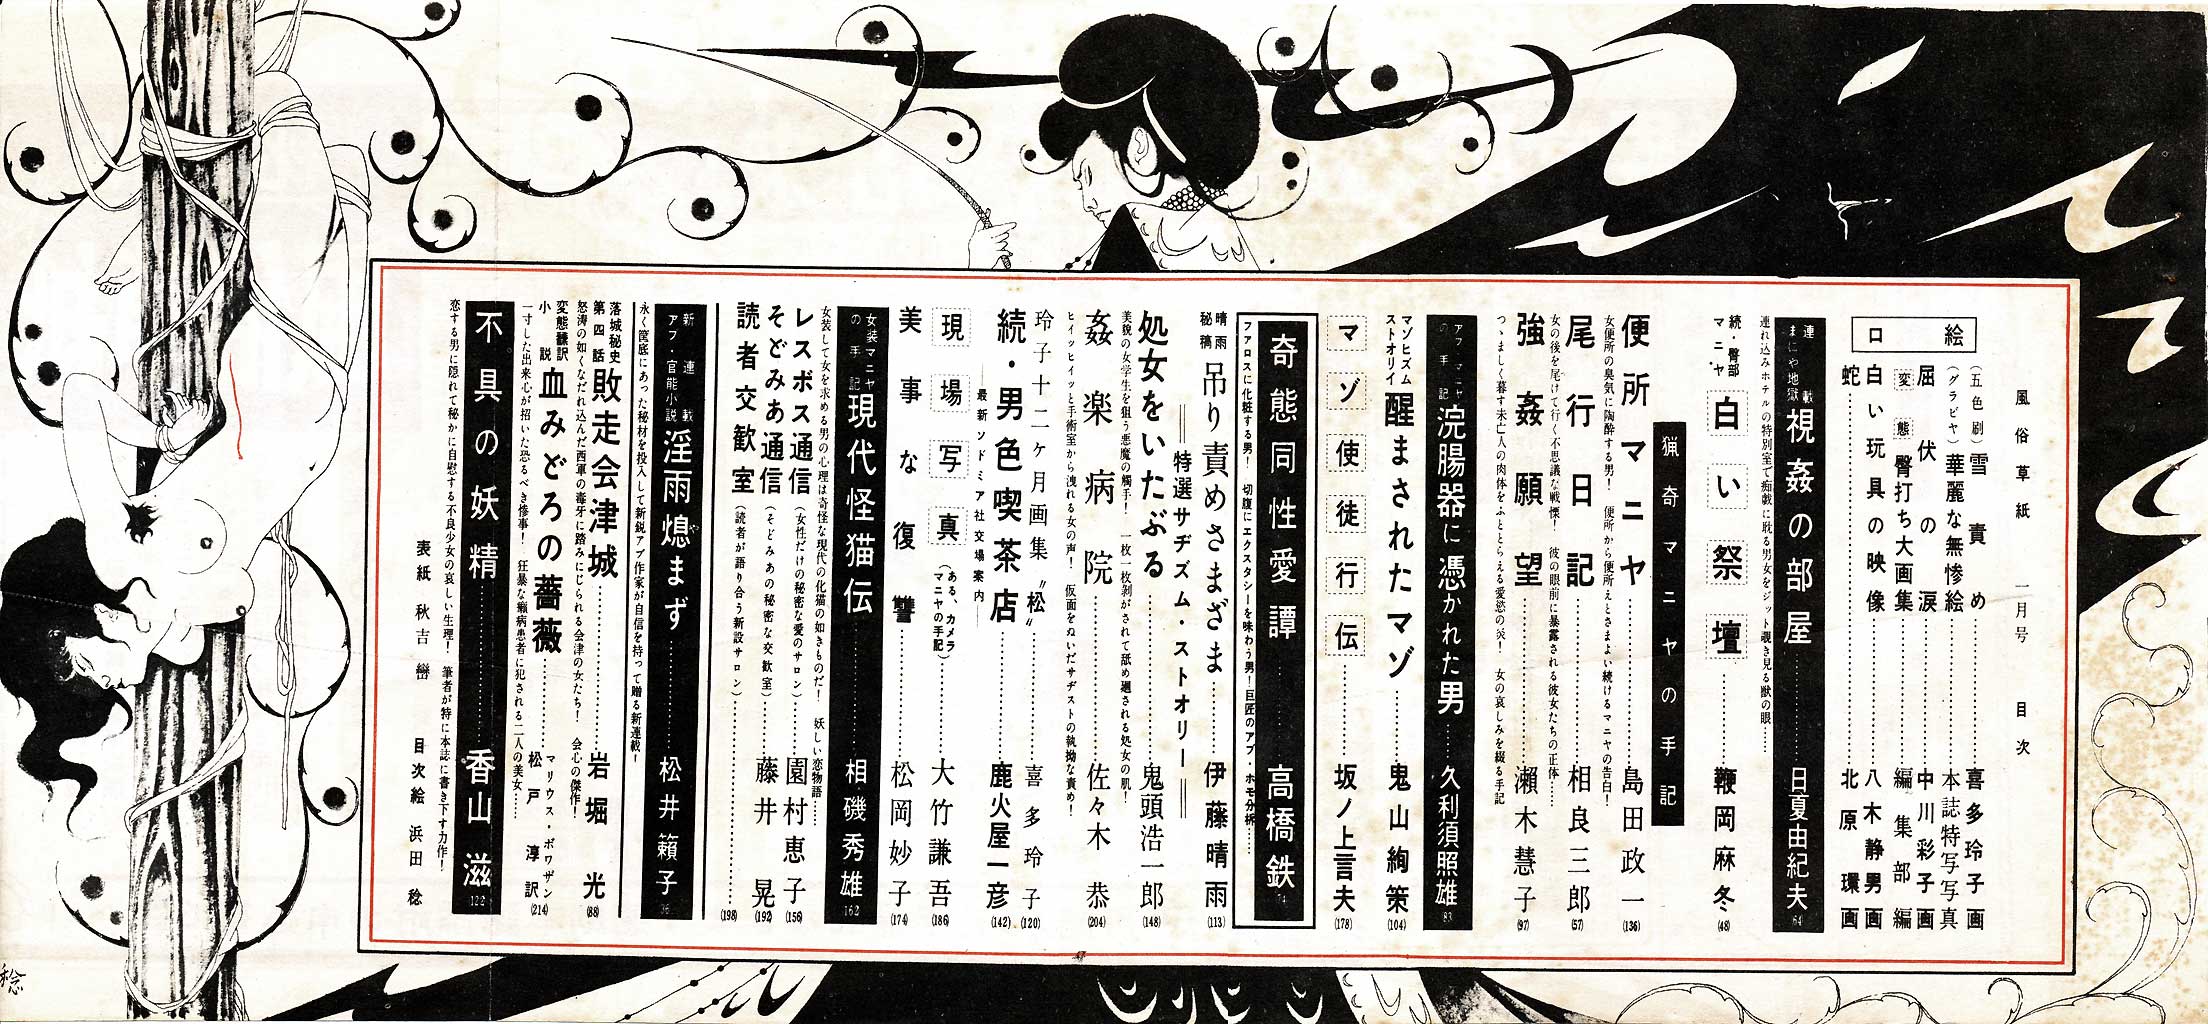 風俗草紙 一月号 目次
口絵
(五色刷)雪責め……喜多玲子画
(グラビヤ)華麗な無惨絵……本誌特写写真
屈伏の涙……中川彩子画
変態 臀打ち大画集……編集部編
白い玩具の映像……八木静男画
蛇……北原環画
連載 まにや地獄 視姦の部屋……日夏由紀夫 64
連れ込みホテルの特別室で痴戯に耽る男女をジット覗き見る獣の眼……
続・臀部マニヤ 白い祭壇……鞭岡麻冬(48)
猟奇マニヤの手記
便所マニヤ……島田政一(136)
女便所の臭気に陶酔する男! 便所から便所えとさまよい続けるマニヤの告白!
尾行日記……相良三郎(57)
女の後を尾けて行く不思議な戦慄! 彼の眼前に暴露される彼女たちの正体……
強姦願望……瀬木慧子(97)
つゝましく暮す未亡人の肉体をふととらえる愛慾の炎! 女の哀しみを綴る手記
アブ・マニヤの手記 浣腸器に憑かれた男……久利須照雄 83
マゾヒズムストオリイ 醒まされたマゾ……鬼山絢策(104)
マゾ使徒行伝……坂ノ上言夫(178)
奇態同性愛譚 高橋鉄 74
ファロスに化粧する男! 切腹にエクスタシーを味わう男!巨匠のアブ・ホモ分析……
晴雨秘稿 吊り責めさまざま……伊藤晴雨(113)
＝特選サヂズム・ストオリー＝
処女をいたぶる……鬼頭浩一郎(148)
姦楽病院……佐々木恭(204)
ヒイッヒイッと手術室から洩れる女の声! 仮面をぬいだサヂストの執拗な責め!
玲子十二ヶ月画集〝松〟……喜多玲子(120)
続・男色喫茶店……鹿火屋一彦(142)
―最新ソドミア社交場案内―
現場写真(ある、カメラマニヤの手記)……大竹謙吾(186)
美事な復讐……松岡妙子(174)
女装マニヤの手記 現代怪猫伝……相磯秀雄 162
女装して女を求める男の心理は奇怪な現代の化猫の如きものだ! 妖しい恋物語……
レスボス通信(女性だけの秘密な愛のサロン)……園村恵子(156)
そどみあ通信(そどみあの秘密な交歓室)……藤井晃(192)
読者交歓室(読者が語り合う新設サロン)……(198)
新連載 アブ・官能小説 淫雨熄まず……松井籟子 36
永く筐底にあった秘材を投入して新鋭アブ作家が自信を持って贈る新連載!
落城秘史 第四話 敗走会津城……岩堀光(88)
怒涛の如くなだれ込んだ西軍の毒牙に踏みにじられる会津の女たち! 会心の傑作!
変態飜訳小説 血みどろの薔薇……マリウス・ボワザン 松戸淳訳(214)
一寸した出来心が招いた恐るべき惨事! 狂暴な癩病患者に犯される二人の美女……
不具の妖精……香山滋 122
表紙 秋吉巒 目次絵 浜田稔
稔